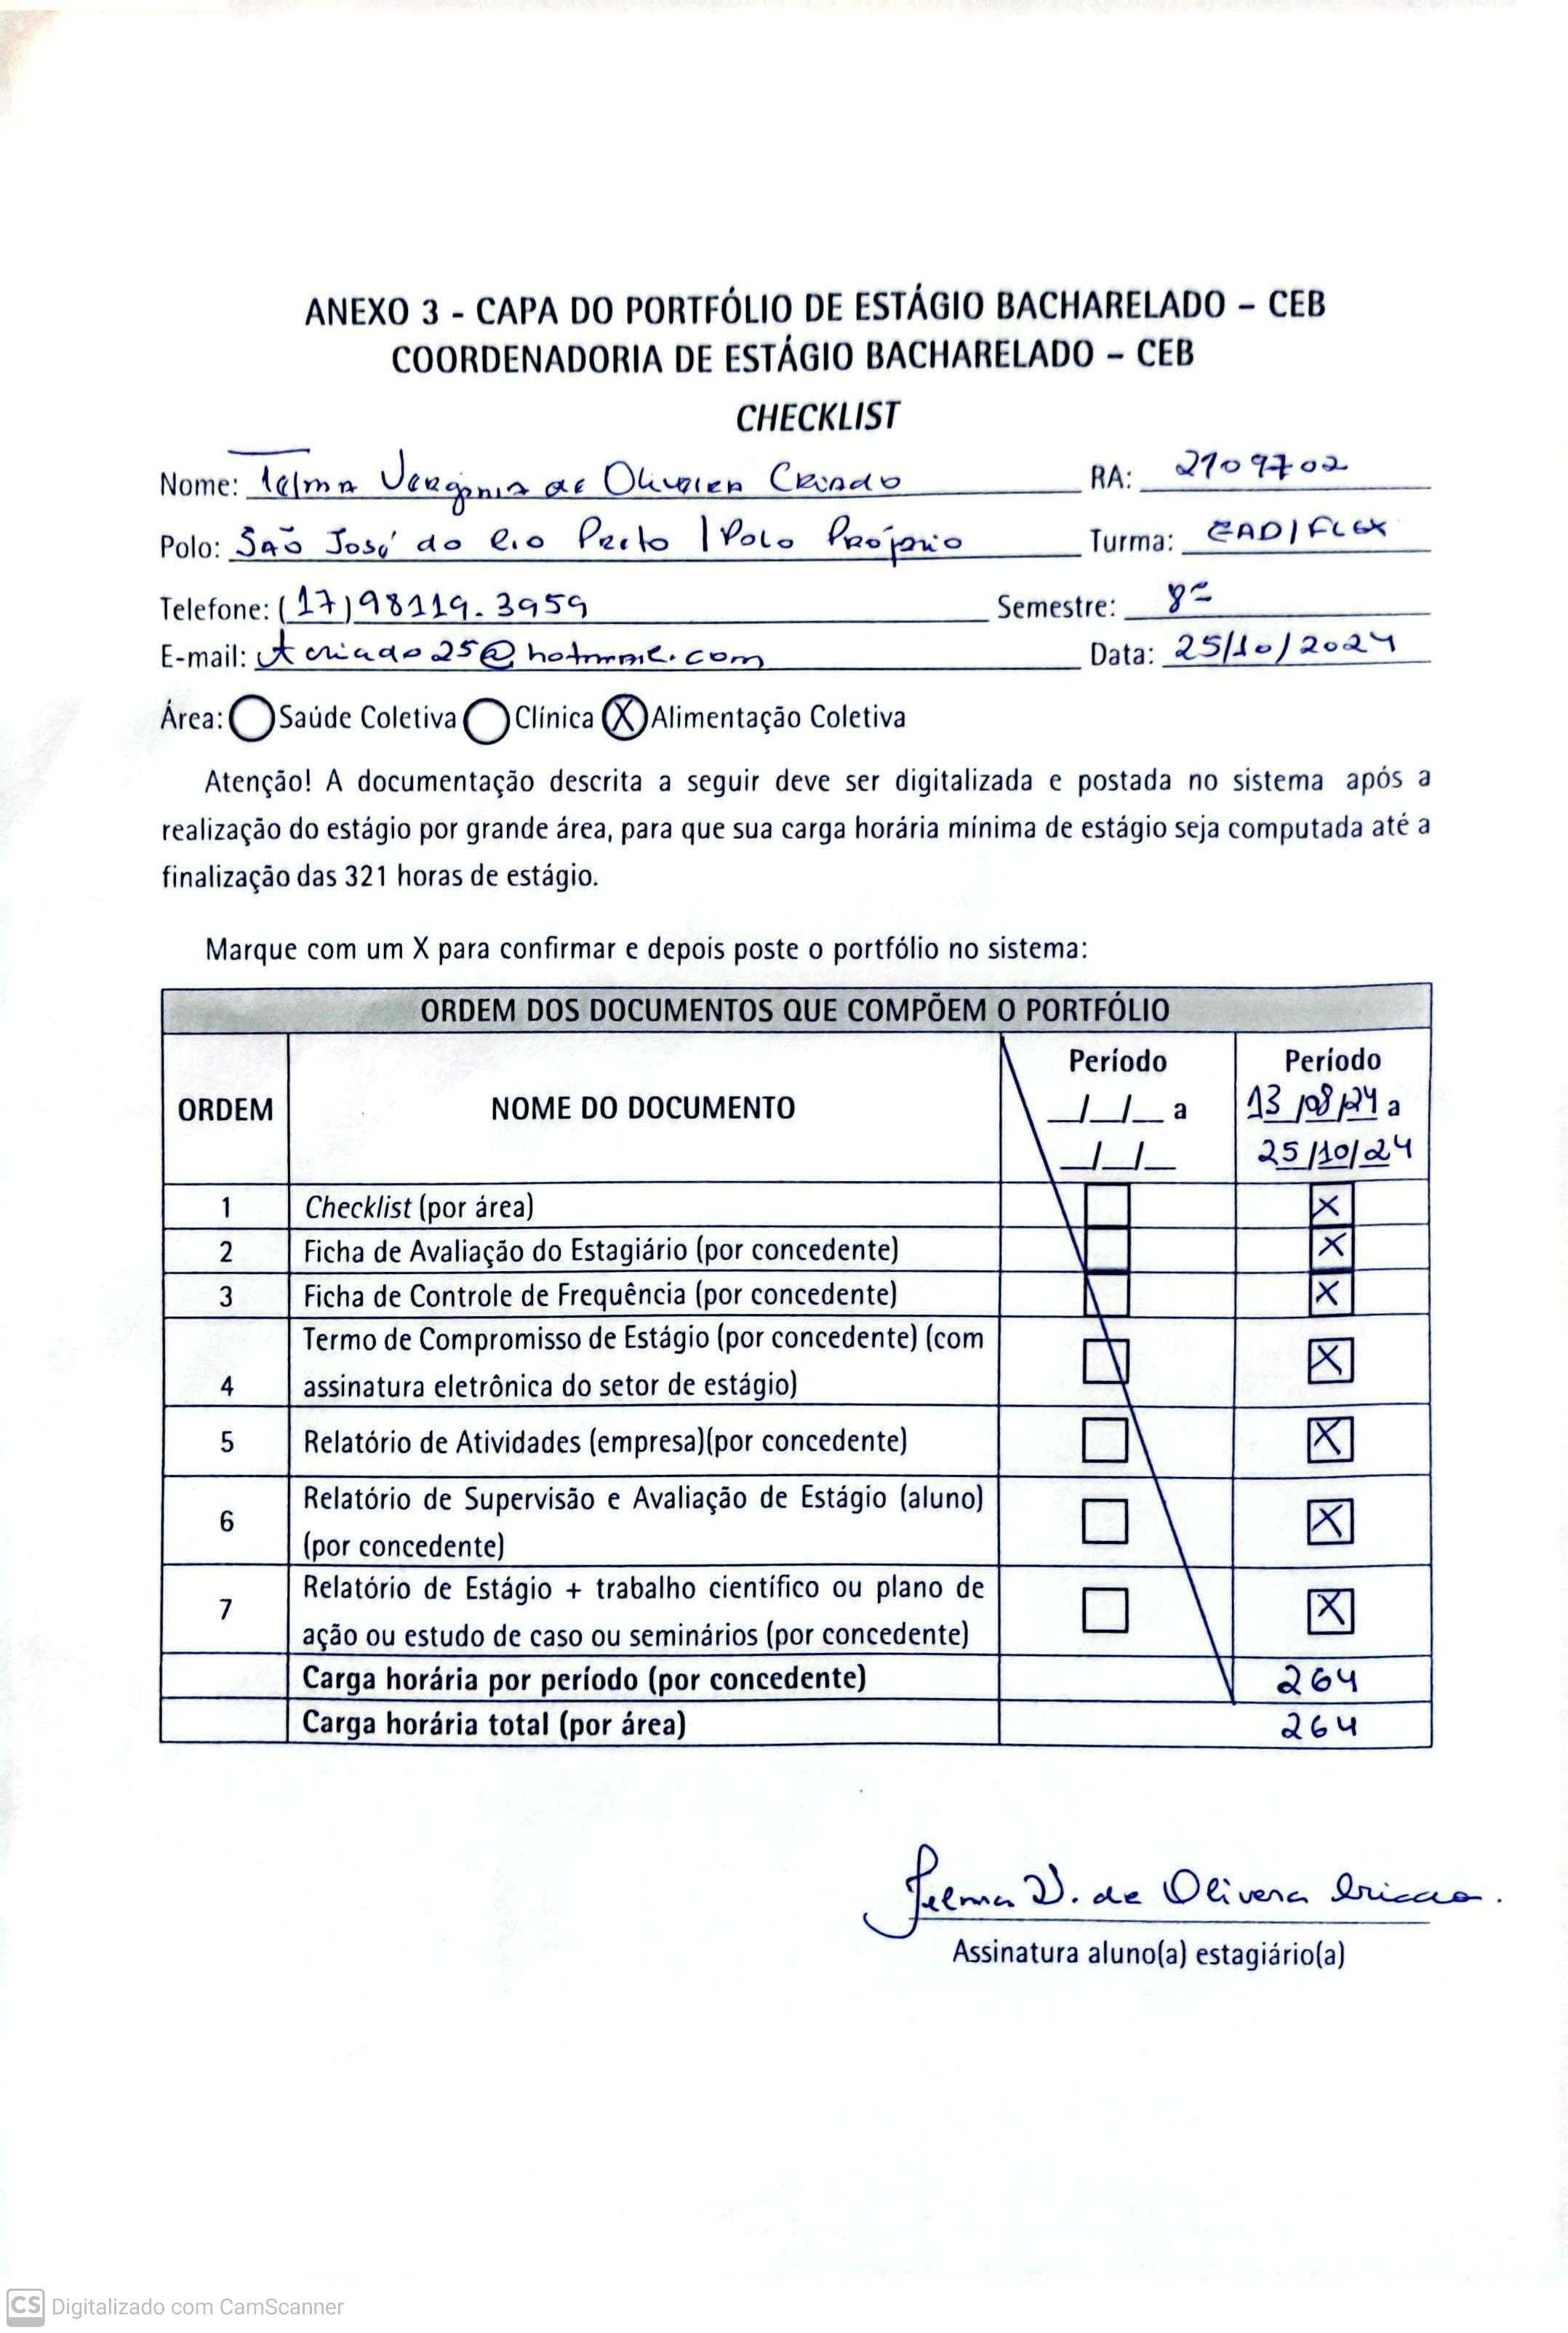 ANEXO 3 - CAPA DO PORTFÓLIO DE ESTÁGIO BACHARELADO – CEB
COORDENADORIA DE ESTÁGIO BACHARELADO – CEB
CHECKLIST
Nome: Telma Vergínia de Oliveira Criado RA: 2109702
Polo: São José do Rio Preto | Polo Próprio Turma: EAD/FLEX
Telefone: (17)98119.3959 Semestre: 8º
E-mail: tcriado25@hotmail.com Data: 25/10/2024
Área: Saúde Coletiva Clínica X Alimentação Coletiva
Atenção! A documentação descrita a seguir deve ser digitalizada e postada no sistema após a
realização do estágio por grande área, para que sua carga horária mínima de estágio seja computada até a
finalização das 321 horas de estágio.
Marque com um X para confirmar e depois poste o portfólio no sistema:
ORDEM DOS DOCUMENTOS QUE COMPÕEM O PORTFÓLIO
ORDEM NOME DO DOCUMENTO Período __/__/__ a __/__/__ Período 13/08/24 a 25/10/24
1 Checklist (por área) X
2 Ficha de Avaliação do Estagiário (por concedente) X
3 Ficha de Controle de Frequência (por concedente) X
4 Termo de Compromisso de Estágio (por concedente) (com
assinatura eletrônica do setor de estágio) X
5 Relatório de Atividades (empresa)(por concedente) X
6 Relatório de Supervisão e Avaliação de Estágio (aluno)
(por concedente) X
7 Relatório de Estágio + trabalho científico ou plano de
ação ou estudo de caso ou seminários (por concedente) X
Carga horária por período (por concedente) 264
Carga horária total (por área) 264
Telma V. de Oliveira Criado.
Assinatura aluno(a) estagiário(a)
CS Digitalizado com CamScanner